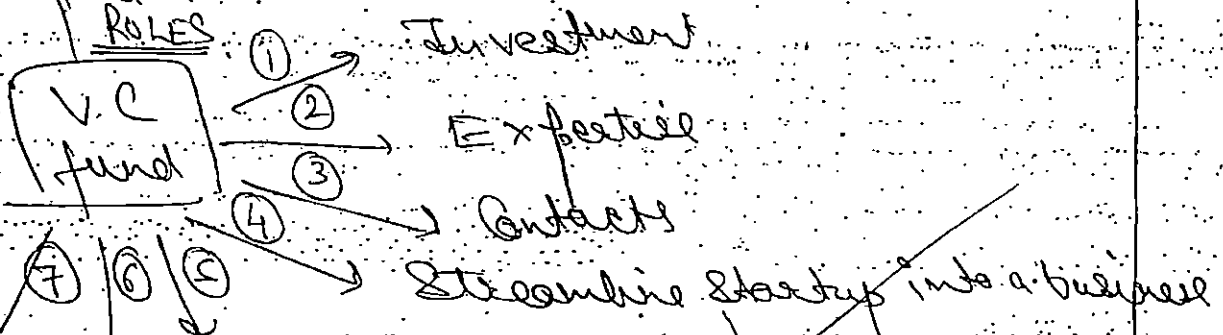 ROLES
① Investment
V.C fund
② Expertise
③ Contacts
④ Streamline Startup into a business
⑦ ⑥ ⑤